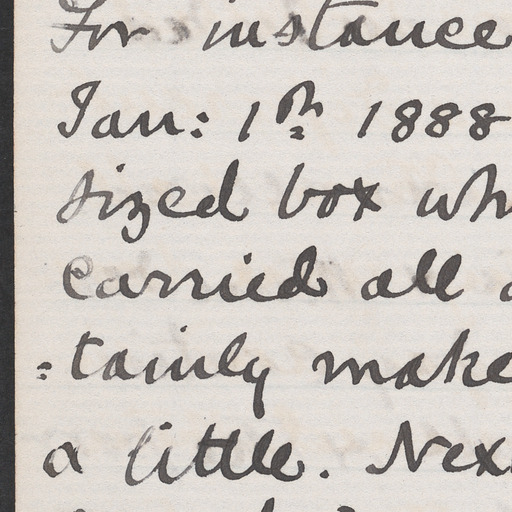 For instance
Jan: 1th 1888
sized box wh
carried all
=tainly make
a little. Nex